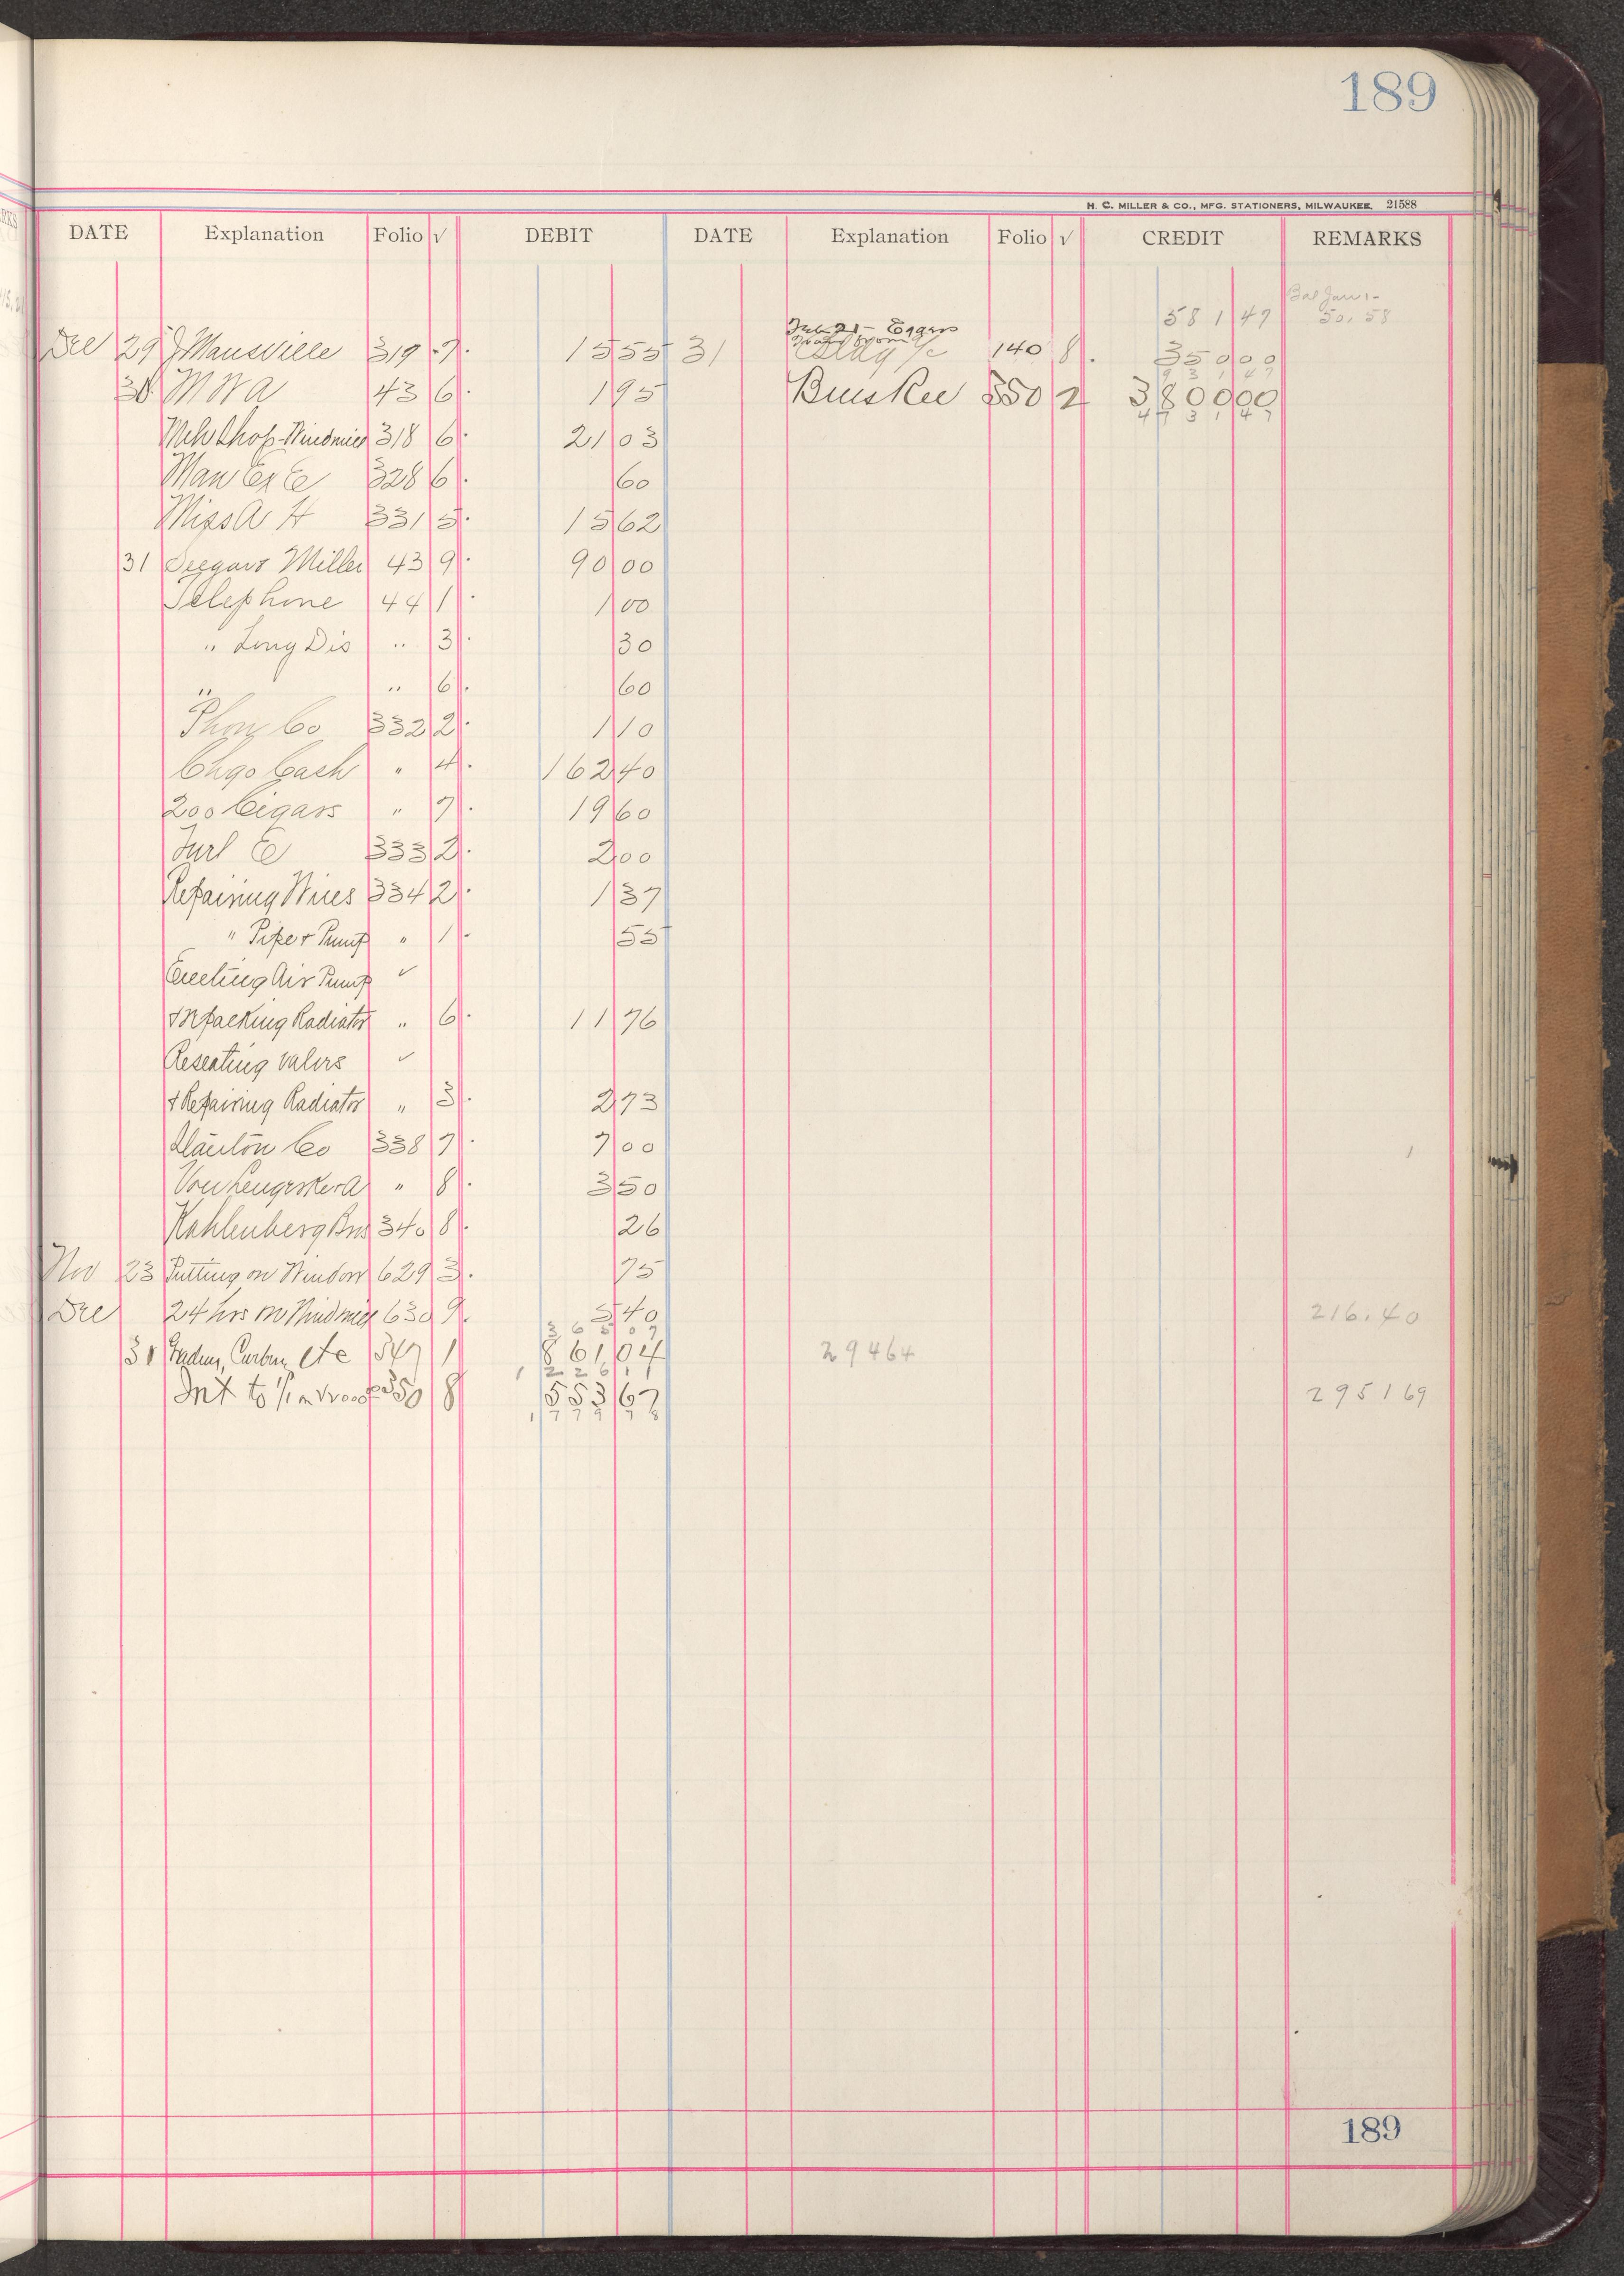 189
H. C. MILLER & CO., MFG. STATIONERS, MILWAUKEE, 21588
DATE Explanation Folio √ DEBIT DATE Explanation Folio √ CREDIT REMARKS
581 47 Bal Jan 1-
50.58
Eggers
Dec 29 J Mansville 319 7 15 55 31 140 8 350 00
931 47
30 M W A 43 6 1 95 850 2 3800 00
4731 47
318 6 21 03
Man Ex Co 328 6 60
Miss A H 331 5 15 62
31 Seegars Miller 43 9 90 00
Telephone 44 1 1 00
" Long Dis " 3 30
" " 6 60
Phon Co 332 2 1 10
Chgo Cash " 4 162 40
200 Cigars " 7 19 60
333 2 2 00
Repairing Wires 334 2 1 37
" Pipe & Pump " 1 55
Erecting Air Pump √
& Repacking Radiator " 6 11 76
Reseating valves √
& Repairing Radiator " 3 2 73
Co 338 7 7 00
" 8 3 50
Kahlenberg Bros 340 8 26
Nov 23 Putting on Window 629 3 75
Dec 24 hrs on Windmill 630 9 5 40 216.40
365 07
31 Curbing etc 347 1 861 04 29464
1226 11
Int to 350 8 553 67 2951 69
1779 78
189